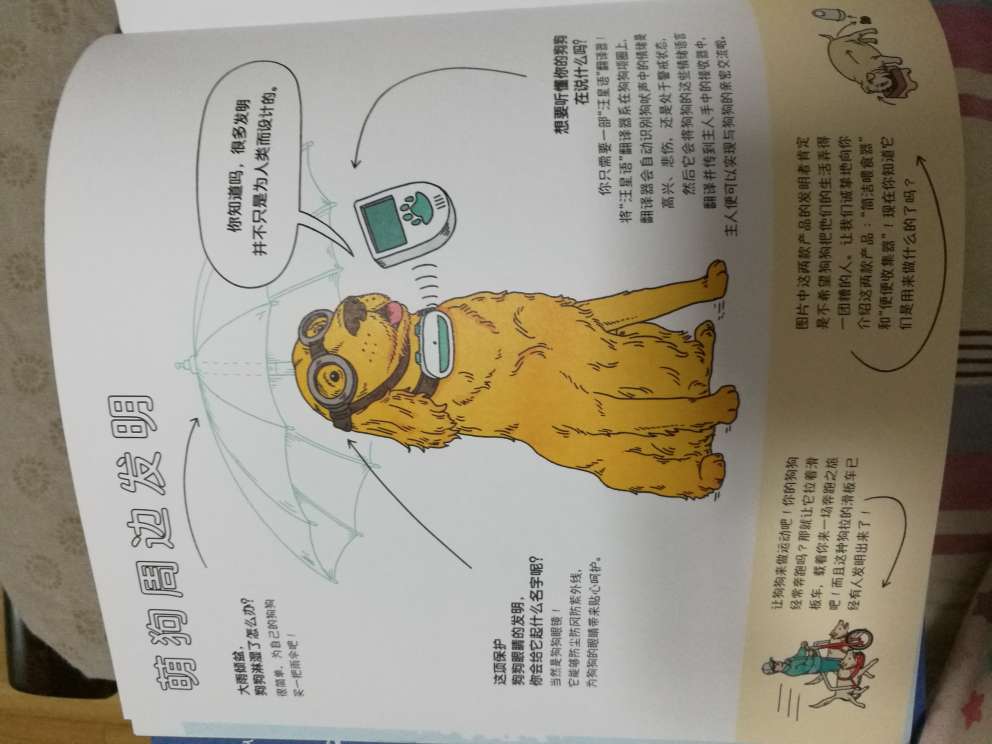 萌狗周边发明
你知道吗，很多发明
并不只是为人类而设计的。
大雨倾盆，
狗狗淋湿了怎么办？
很简单，为自己的狗狗
买一把雨伞吧！
想要听懂你的狗狗
在说什么吗？
你只需要一部“汪星语”翻译器！
将“汪星语”翻译器系在狗狗项圈上，
翻译器会自动识别狗吠声中的情绪是
高兴、悲伤，还是处于警戒状态，
然后它会将狗狗的这些情绪语言
翻译并传到主人手中的接收器中，
主人便可以实现与狗狗的亲密交流啦。
这项保护
狗狗眼睛的发明，
你会给它起什么名字呢？
当然是狗狗眼镜！
它能够防尘防风防紫外线，
为狗狗的眼睛带来贴心呵护。
让狗狗来做运动吧！你的狗狗
经常奔跑吗？那就让它拉着滑
板车，载着你来一场奔跑之旅
吧！而且这种狗拉的滑板车已
经有人发明出来了！
图片中这两款产品的发明者肯定
是不希望狗狗把他们的生活弄得
一团糟的人。让我们诚挚地向你
介绍这两款产品：“简洁喂食器”
和“便便收集器”！现在你知道它
们是用来做什么的了吗？